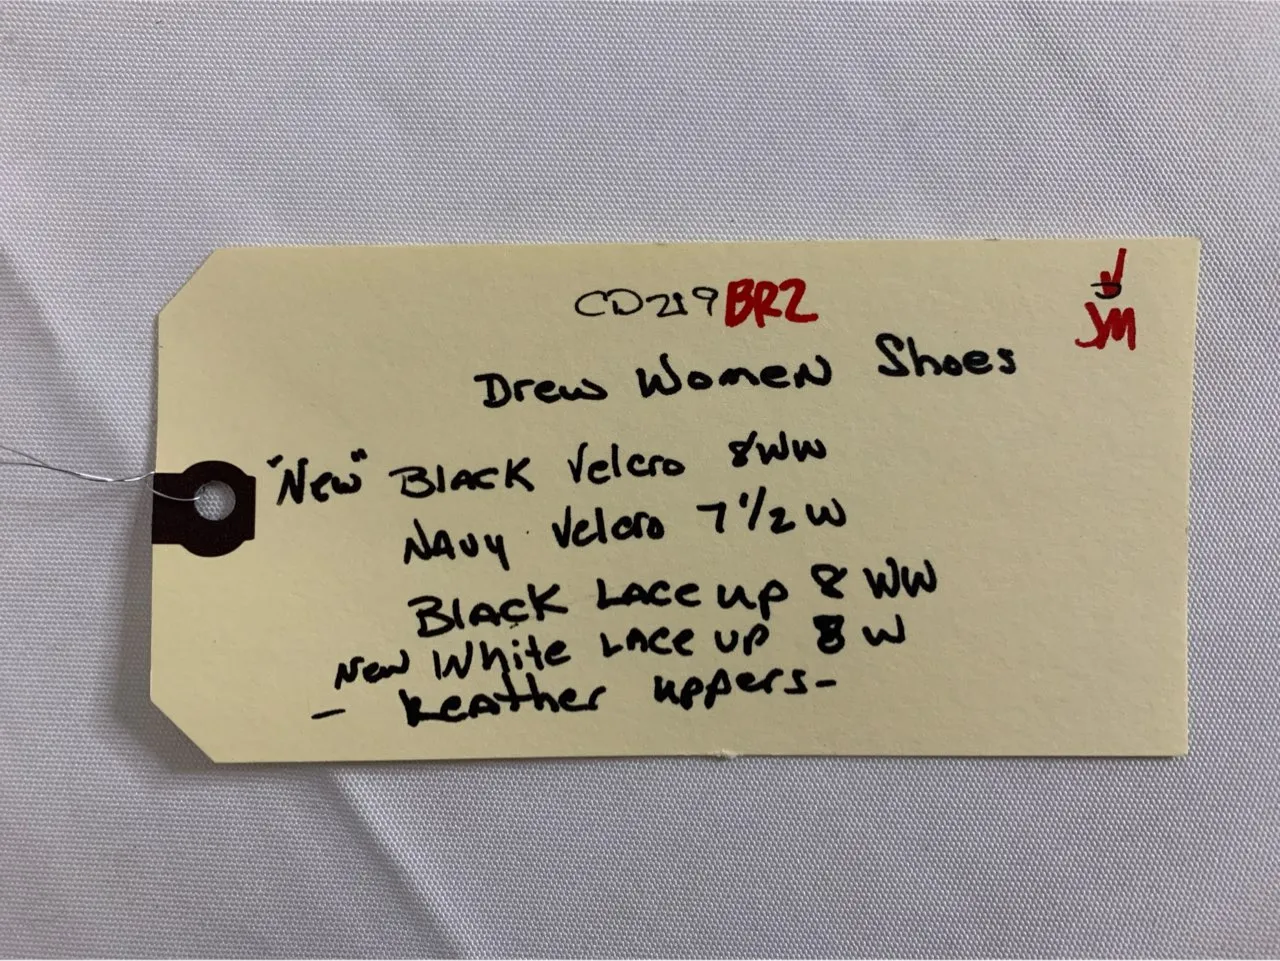 CD219 BR2
JM
Drew Women Shoes
"New" Black Velcro 8WW
Navy Velcro 7 1/2 W
Black Lace up 8 WW
New White Lace up 8 W
- Leather uppers-